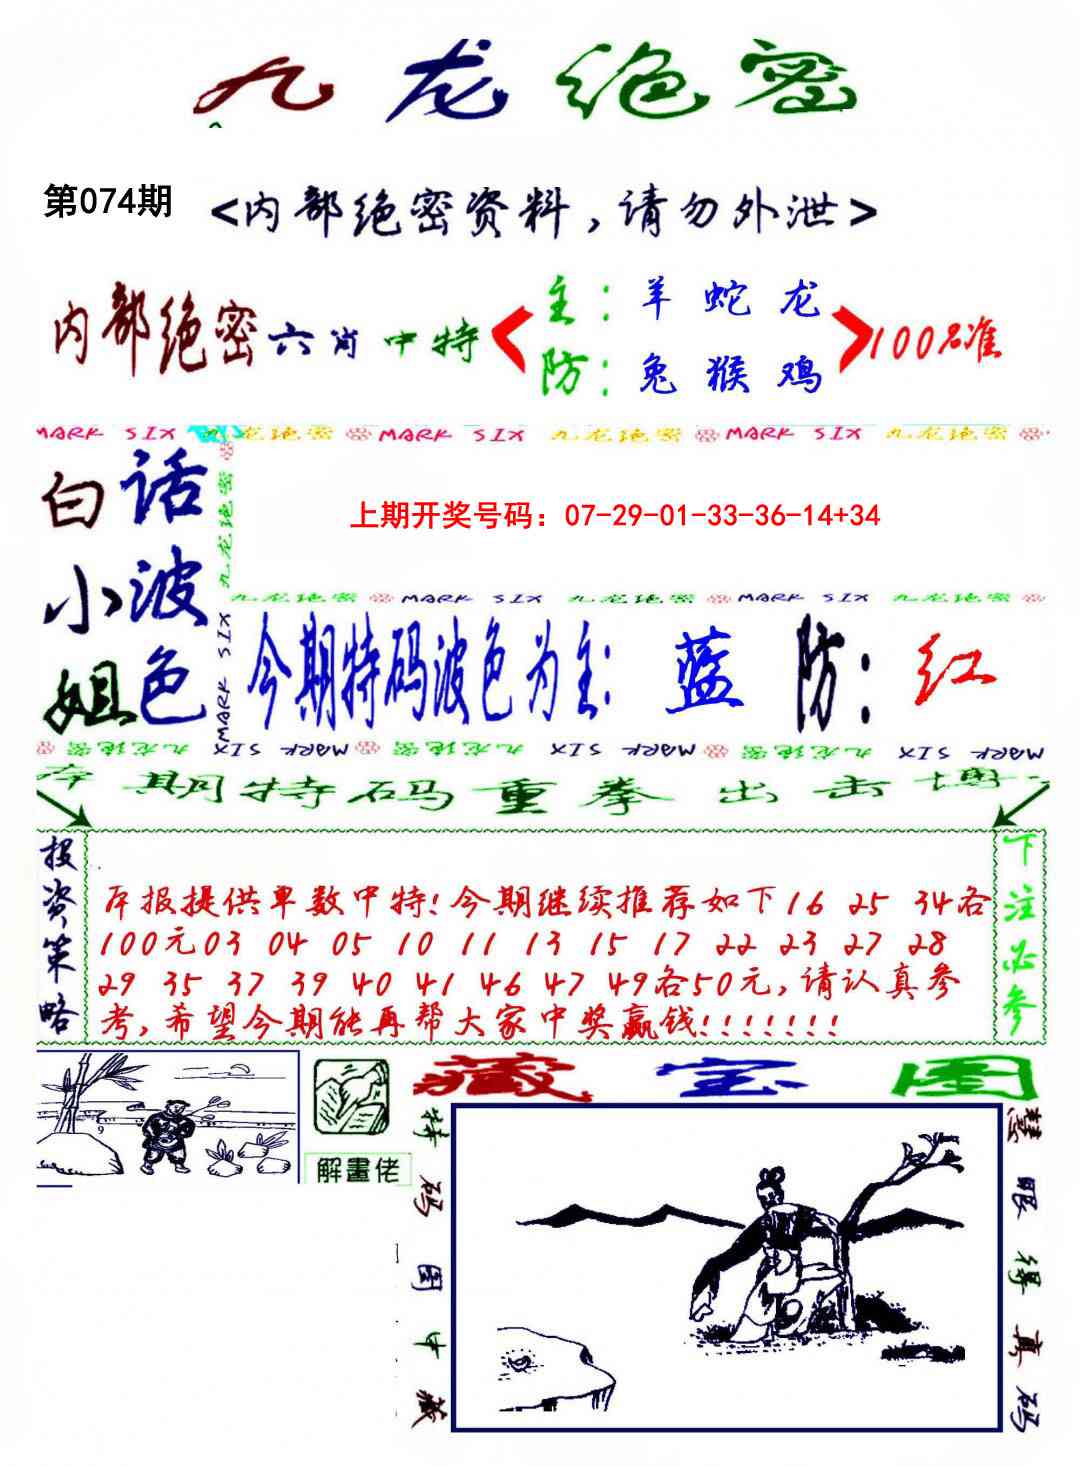 九龙绝密
第074期
<内部绝密资料,请勿外泄>
内部绝密六肖中特
主:羊 蛇 龙
防:兔 猴 鸡
100%准
MARK SIX 九龙绝密 MARK SIX 九龙绝密 MARK SIX 九龙绝密
白小姐
话波色
九龙绝密 MARK SIX
上期开奖号码：07-29-01-33-36-14+34
九龙绝密 MARK SIX 九龙绝密 MARK SIX 九龙绝密
今期特码波色为主: 蓝 防: 红
九龙绝密 MARK SIX 九龙绝密 MARK SIX 九龙绝密 MARK SIX
本期特码重拳出击博
投资策略
本报提供单数中特!今期继续推荐如下16 25 34各
100元03 04 05 10 11 13 15 17 22 23 27 28
29 35 37 39 40 41 46 47 49各50元,请认真参
考,希望今期能再帮大家中奖赢钱!!!!!!!
下注必参
9
解畫佬
藏宝图
特码图中藏
慧眼得真码